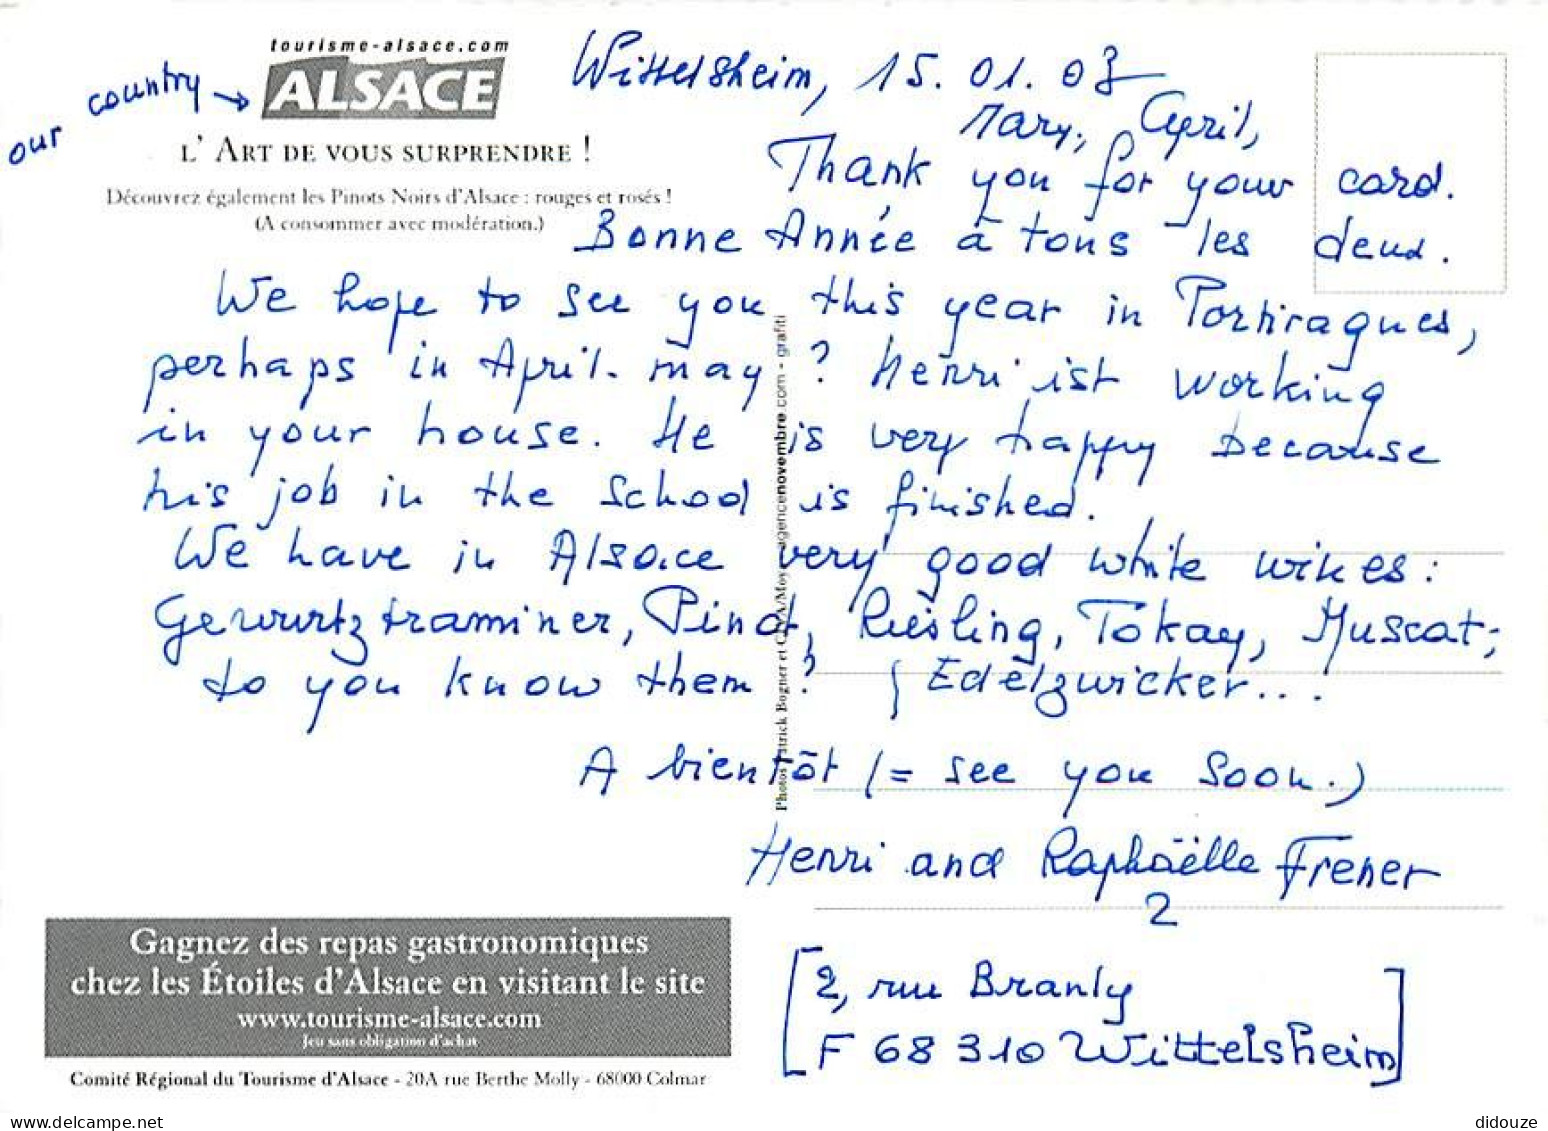 tourisme-alsace.com
ALSACE
our country →
L' ART DE VOUS SURPRENDRE !
Découvrez également les Pinots Noirs d'Alsace : rouges et rosés !
(A consommer avec modération.)
Wittelsheim, 15.01.03
Mary, Cyril,
Thank you for your card.
Bonne Année à tous les deux.
We hope to see you this year in Portiragues,
perhaps in April. may ? Henri ist working
in your house. He is very happy because
his job in the school is finished.
We have in Alsace very good white wines :
Gewurtztraminer, Pinot, Riesling, Tokay, Muscat ;
to you know them ? { Edelzwicker...
A bientôt (= see you soon.)
Henri and Raphaëlle Frener
2
[2, rue Branly
F 68 310 Wittelsheim]
Gagnez des repas gastronomiques
chez les Étoiles d'Alsace en visitant le site
www.tourisme-alsace.com
Jeu sans obligation d'achat
Comité Régional du Tourisme d'Alsace - 20A rue Berthe Molly - 68000 Colmar
Photos Patrick Bogner et agencenovembre.com - grafiti
delcampe.net
didouze